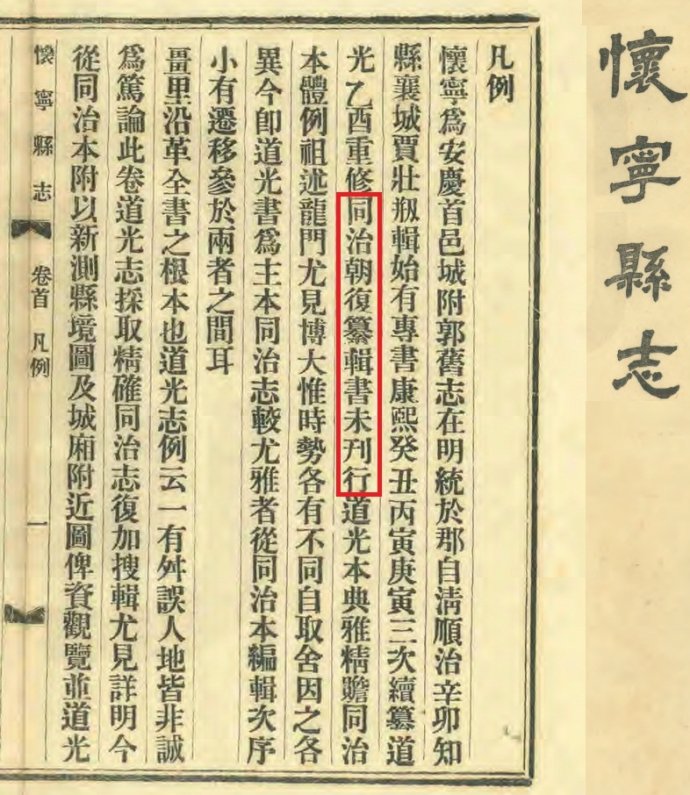 懷寧縣志
凡例
懷寧爲安慶首邑城附郭舊志在明統於郡自淸順治辛卯知
縣襄城賈壯剏輯始有專書康熙癸丑丙寅庚寅三次續纂道
光乙酉重修同治朝復纂輯書未刊行道光本典雅精贍同治
本體例祖述龍門尤見博大惟時勢各有不同自取舍因之各
異今卽道光書爲主本同治志較尤雅者從同治本編輯次序
小有遷移參於兩者之間耳
畺里沿革全書之根本也道光志例云一有舛誤人地皆非誠
爲篤論此卷道光志採取精確同治志復加搜輯尤見詳明今
從同治本附以新測縣境圖及城廂附近圖俾資觀覽並道光
懷寧縣志 卷首 凡例 一